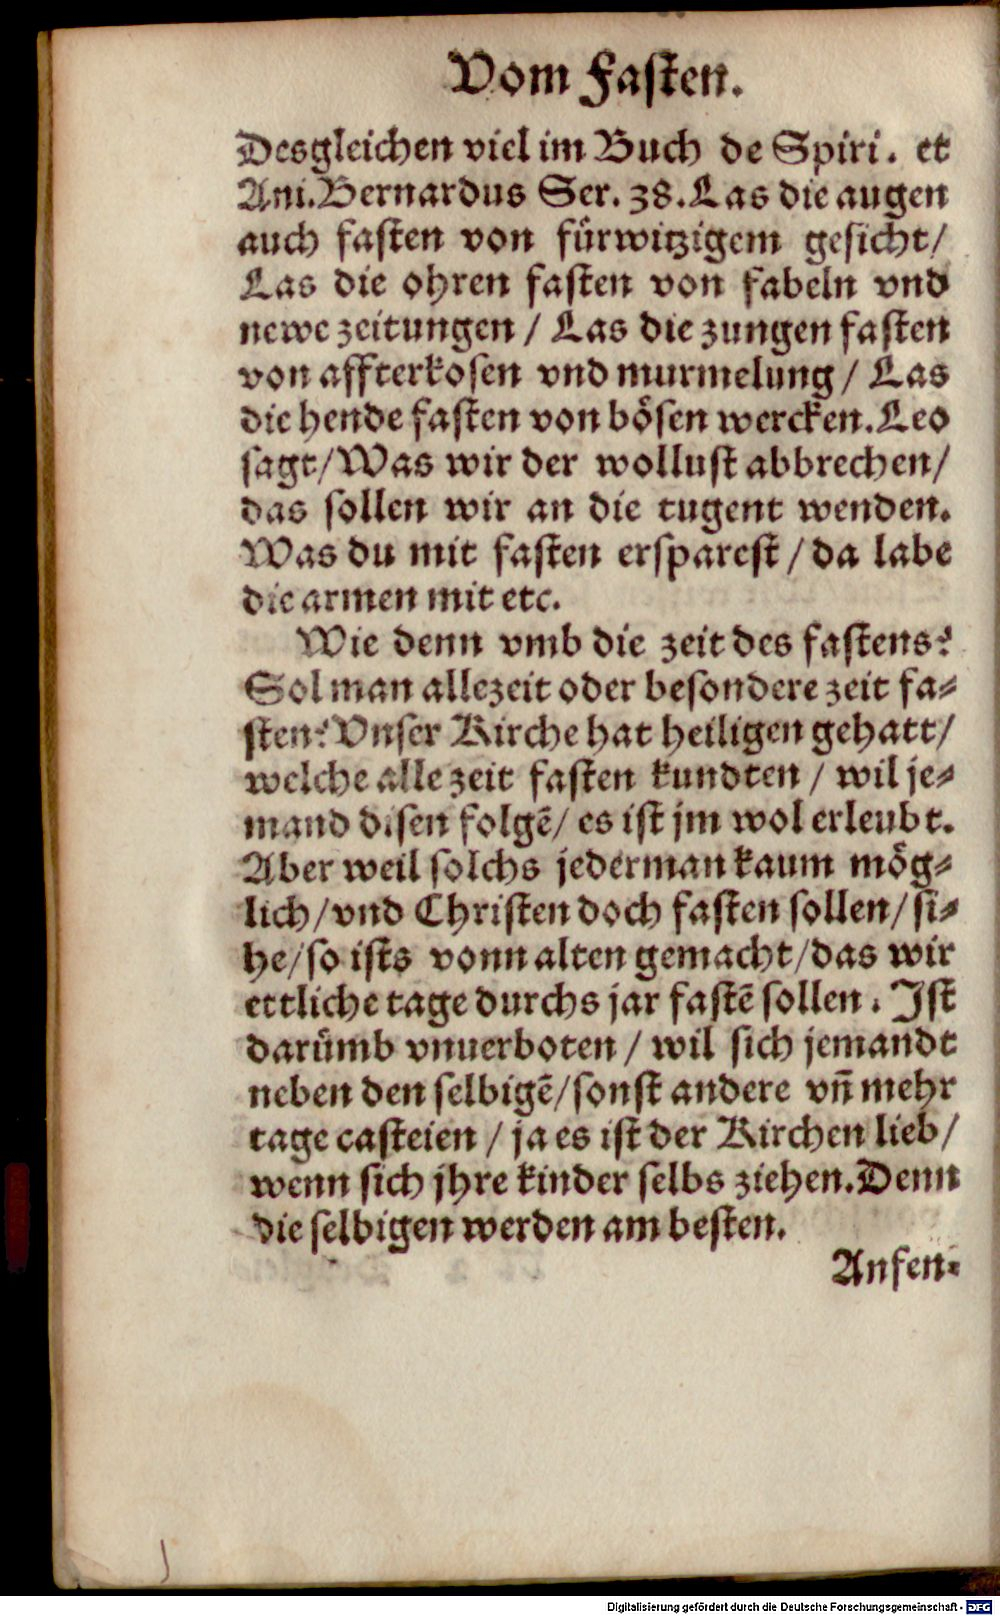 Vom Fasten.
Desgleichen viel im Buch de Spiri. et
Ani. Bernardus Ser. 38. Las die augen
auch fasten von fürwitzigem gesicht/
Las die ohren fasten von fabeln vnd
newe zeitungen / Las die zungen fasten
von affterkosen vnd murmelung / Las
die hende fasten von bösen wercken. Leo
sagt/ Was wir der wollust abbrechen/
das sollen wir an die tugent wenden.
Was du mit fasten ersparest / da labe
die armen mit etc.
Wie denn vmb die zeit des fastens?
Sol man allezeit oder besondere zeit fa-
sten? Vnser Kirche hat heiligen gehatt/
welche alle zeit fasten kundten / wil je-
mand disen folgē/ es ist jm wol erleubt.
Aber weil solchs jederman kaum mög-
lich/ vnd Christen doch fasten sollen/ si-
he/ so ists vonn alten gemacht/ das wir
ettliche tage durchs jar fastē sollen. Ist
darümb vnuerboten / wil sich jemandt
neben den selbigē/ sonst andere vn̄ mehr
tage casteien / ja es ist der Kirchen lieb/
wenn sich jhre kinder selbs ziehen. Denn
die selbigen werden am besten.
Anfen-
Digitalisierung gefördert durch die Deutsche Forschungsgemeinschaft - DFG